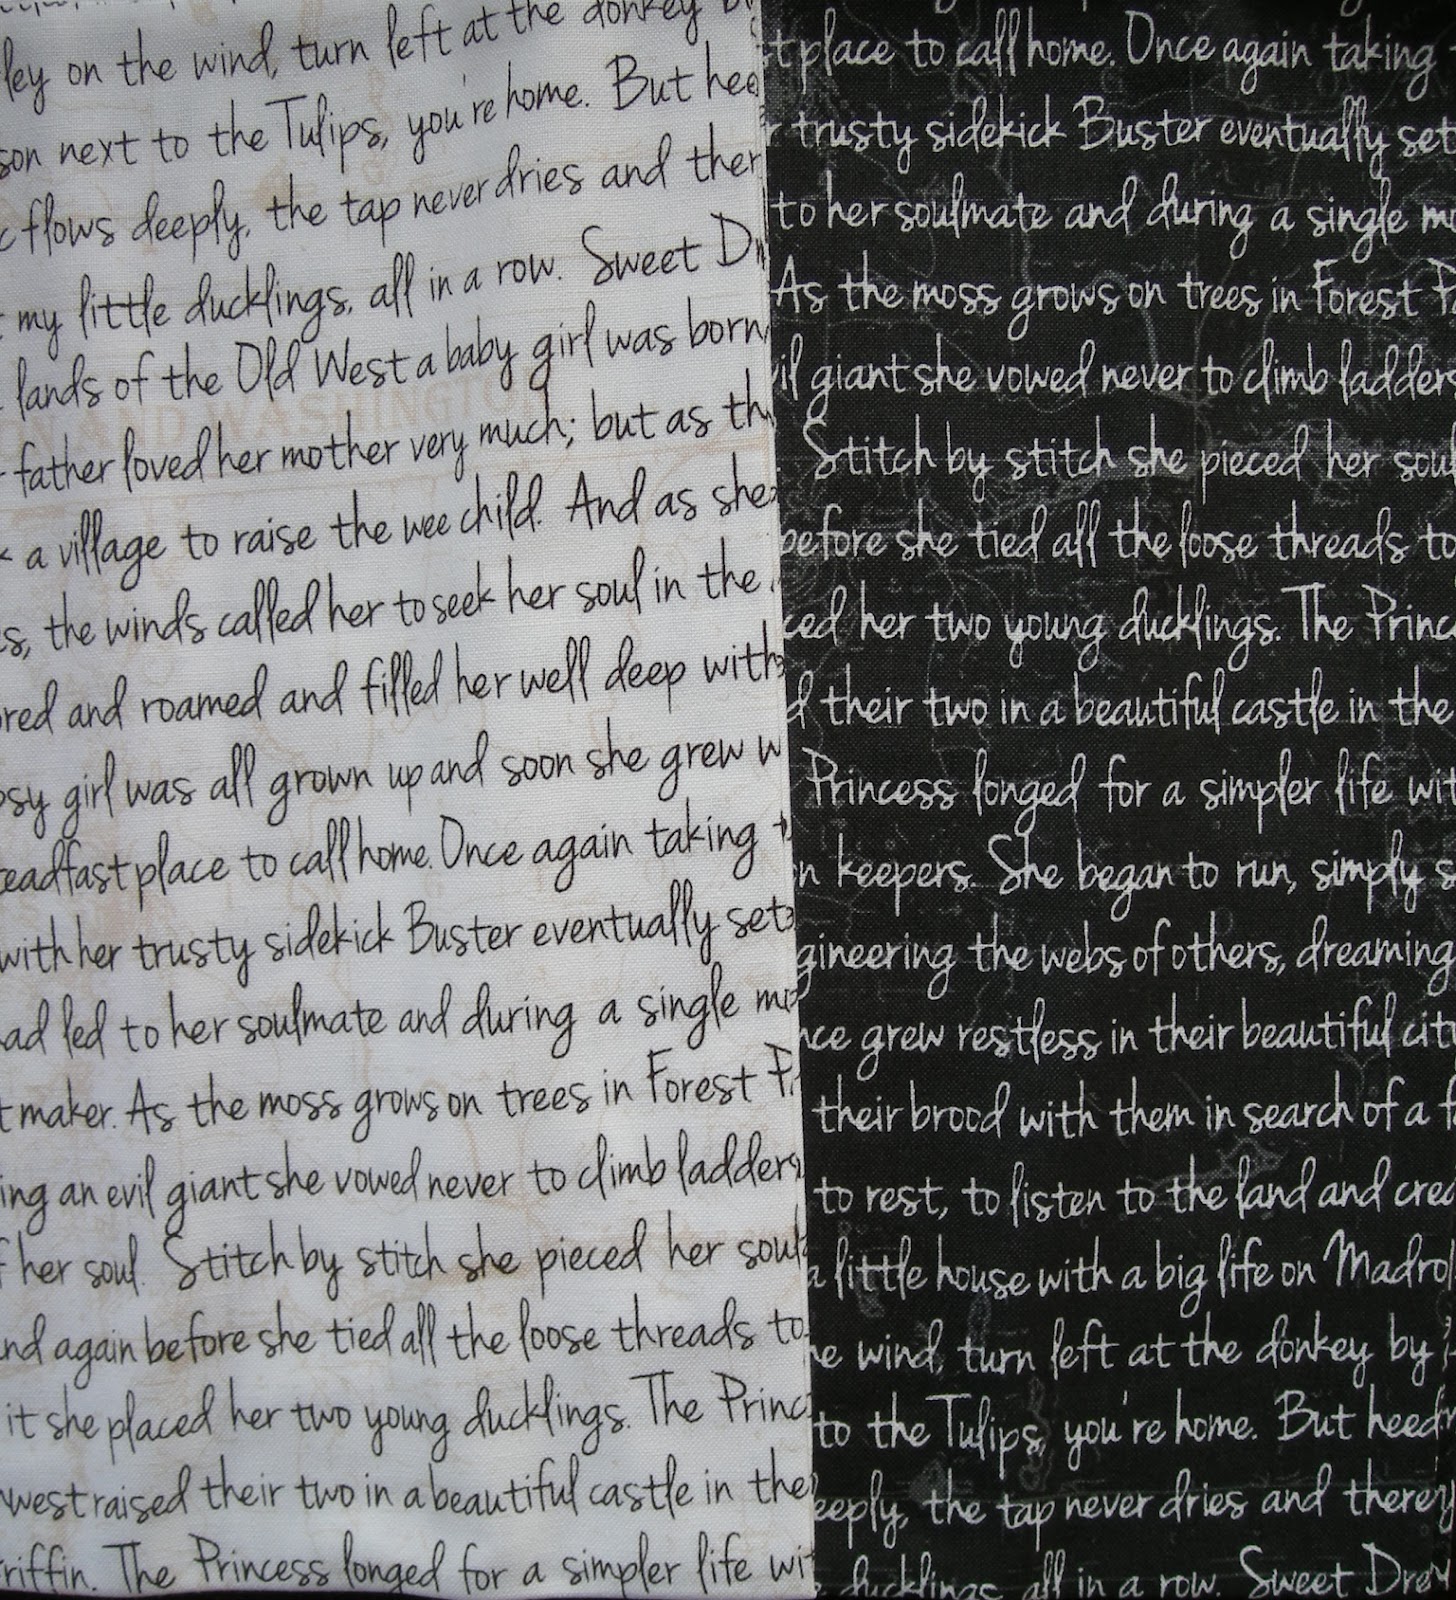 ley on the wind, turn left at the donkey
son next to the Tulips, you're home. But hee
flows deeply, the tap never dries and ther
my little ducklings, all in a row. Sweet Dr
lands of the Old West a baby girl was born
father loved her mother very much; but as th
a village to raise the wee child. And as she
s, the winds called her to seek her soul in the
red and roamed and filled her well deep with
psy girl was all grown up and soon she grew w
eadfast place to call home. Once again taking t
with her trusty sidekick Buster eventually set
ad led to her soulmate and during a single m
t maker. As the moss grows on trees in Forest P
ing an evil giant she vowed never to climb ladders
f her soul. Stitch by stitch she pieced her soul
nd again before she tied all the loose threads to
it she placed her two young ducklings. The Princ
west raised their two in a beautiful castle in the
riffin. The Princess longed for a simpler life wit
t place to call home. Once again taking
r trusty sidekick Buster eventually set
to her soulmate and during a single m
As the moss grows on trees in Forest P
il giant she vowed never to climb ladders
Stitch by stitch she pieced her soul
before she tied all the loose threads to
ced her two young ducklings. The Princ
d their two in a beautiful castle in the
Princess longed for a simpler life wit
n keepers. She began to run, simply s
gineering the webs of others, dreaming
nce grew restless in their beautiful cit
their brood with them in search of a f
to rest, to listen to the land and crea
a little house with a big life on Madro
he wind, turn left at the donkey by
to the Tulips, you're home. But heed
eeply, the tap never dries and there
ducklings, all in a row. Sweet Dre